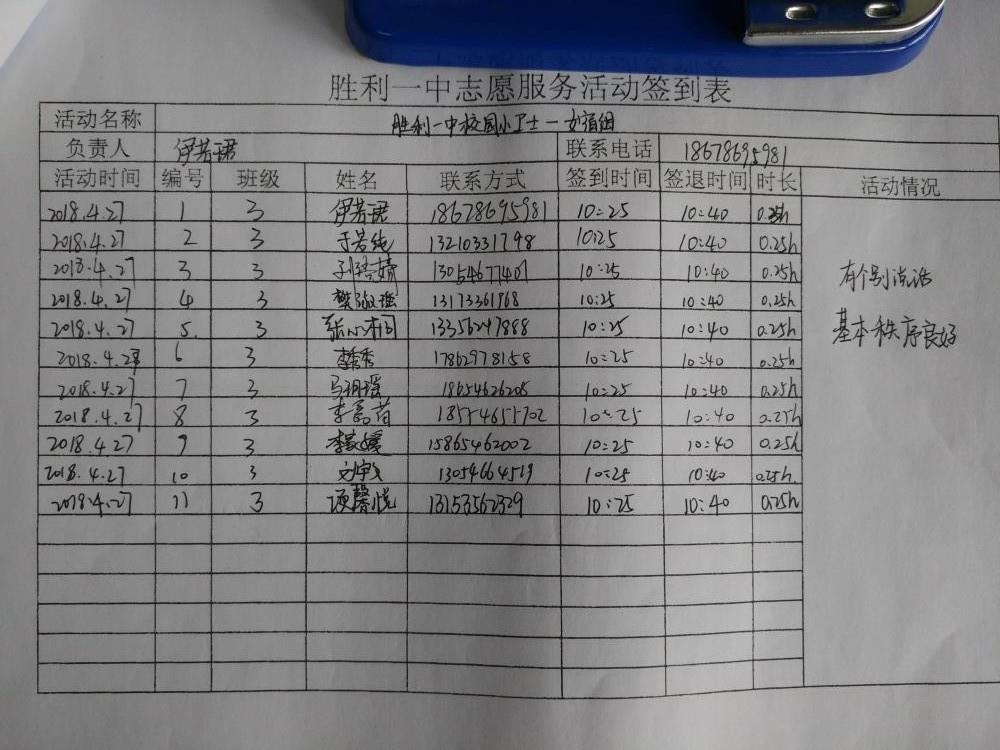 胜利一中志愿服务活动签到表
活动名称 胜利一中校园小卫士一女宿组
负责人 伊芳珺 联系电话 18678695981
活动时间 编号 班级 姓名 联系方式 签到时间 签退时间 时长 活动情况
2018.4.27 1 3 伊芳珺 18678695981 10:25 10:40 0.25h
2018.4.27 2 3 于若纯 13210331798 10:25 10:40 0.25h
2018.4.27 3 3 13054677401 10:25 10:40 0.25h
2018.4.27 4 3 13173361968 10:25 10:40 0.25h
2018.4.27 5. 3 张心桐 13356247888 10:25 10:40 0.25h
6 3 17862978158 10:25 10:40 0.25h
2018.4.27 7 3 马玥瑶 18654626205 10:25 10:40 0.25h
2018.4.27 8 3 18554655702 10:25 10:40 0.25h
2018.4.27 9 3 15865462002 10:25 10:40 0.25h
2018.4.27 10 3 13054664519 10:25 10:40 0.25h
2018.4.27 11 3 13153562329 10:25 10:40 0.25h
有个别说话
基本秩序良好